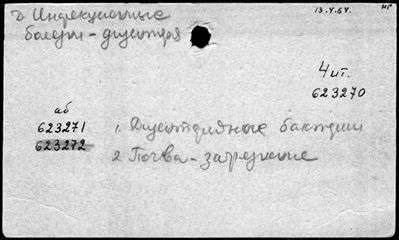 Инфекционные 13.V.64. НР
болезни – дизентерия
4 ит.
623270
аб
623271 1. Дизентерийные бактерии
623272 2 Почва – загрязнение